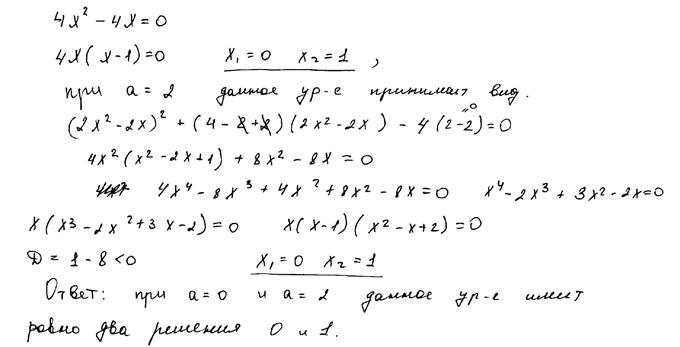 4x² - 4x = 0
4x(x-1)=0 x₁ = 0 x₂ = 1 ,
при a = 2 данное ур-е принимает вид.
(2x² - 2x)² + (4 - 2 + 2)(2x² - 2x) - 4(2-2)=0 "0
4x²(x² - 2x + 1) + 8x² - 8x = 0
4x⁴ - 8x³ + 4x² + 8x² - 8x = 0 x⁴ - 2x³ + 3x² - 2x = 0
x(x³ - 2x² + 3x - 2) = 0 x(x-1)(x² - x + 2) = 0
D = 1 - 8 < 0 x₁ = 0 x₂ = 1
Ответ: при a = 0 и a = 2 данное ур-е имеет
ровно два решения 0 и 1.